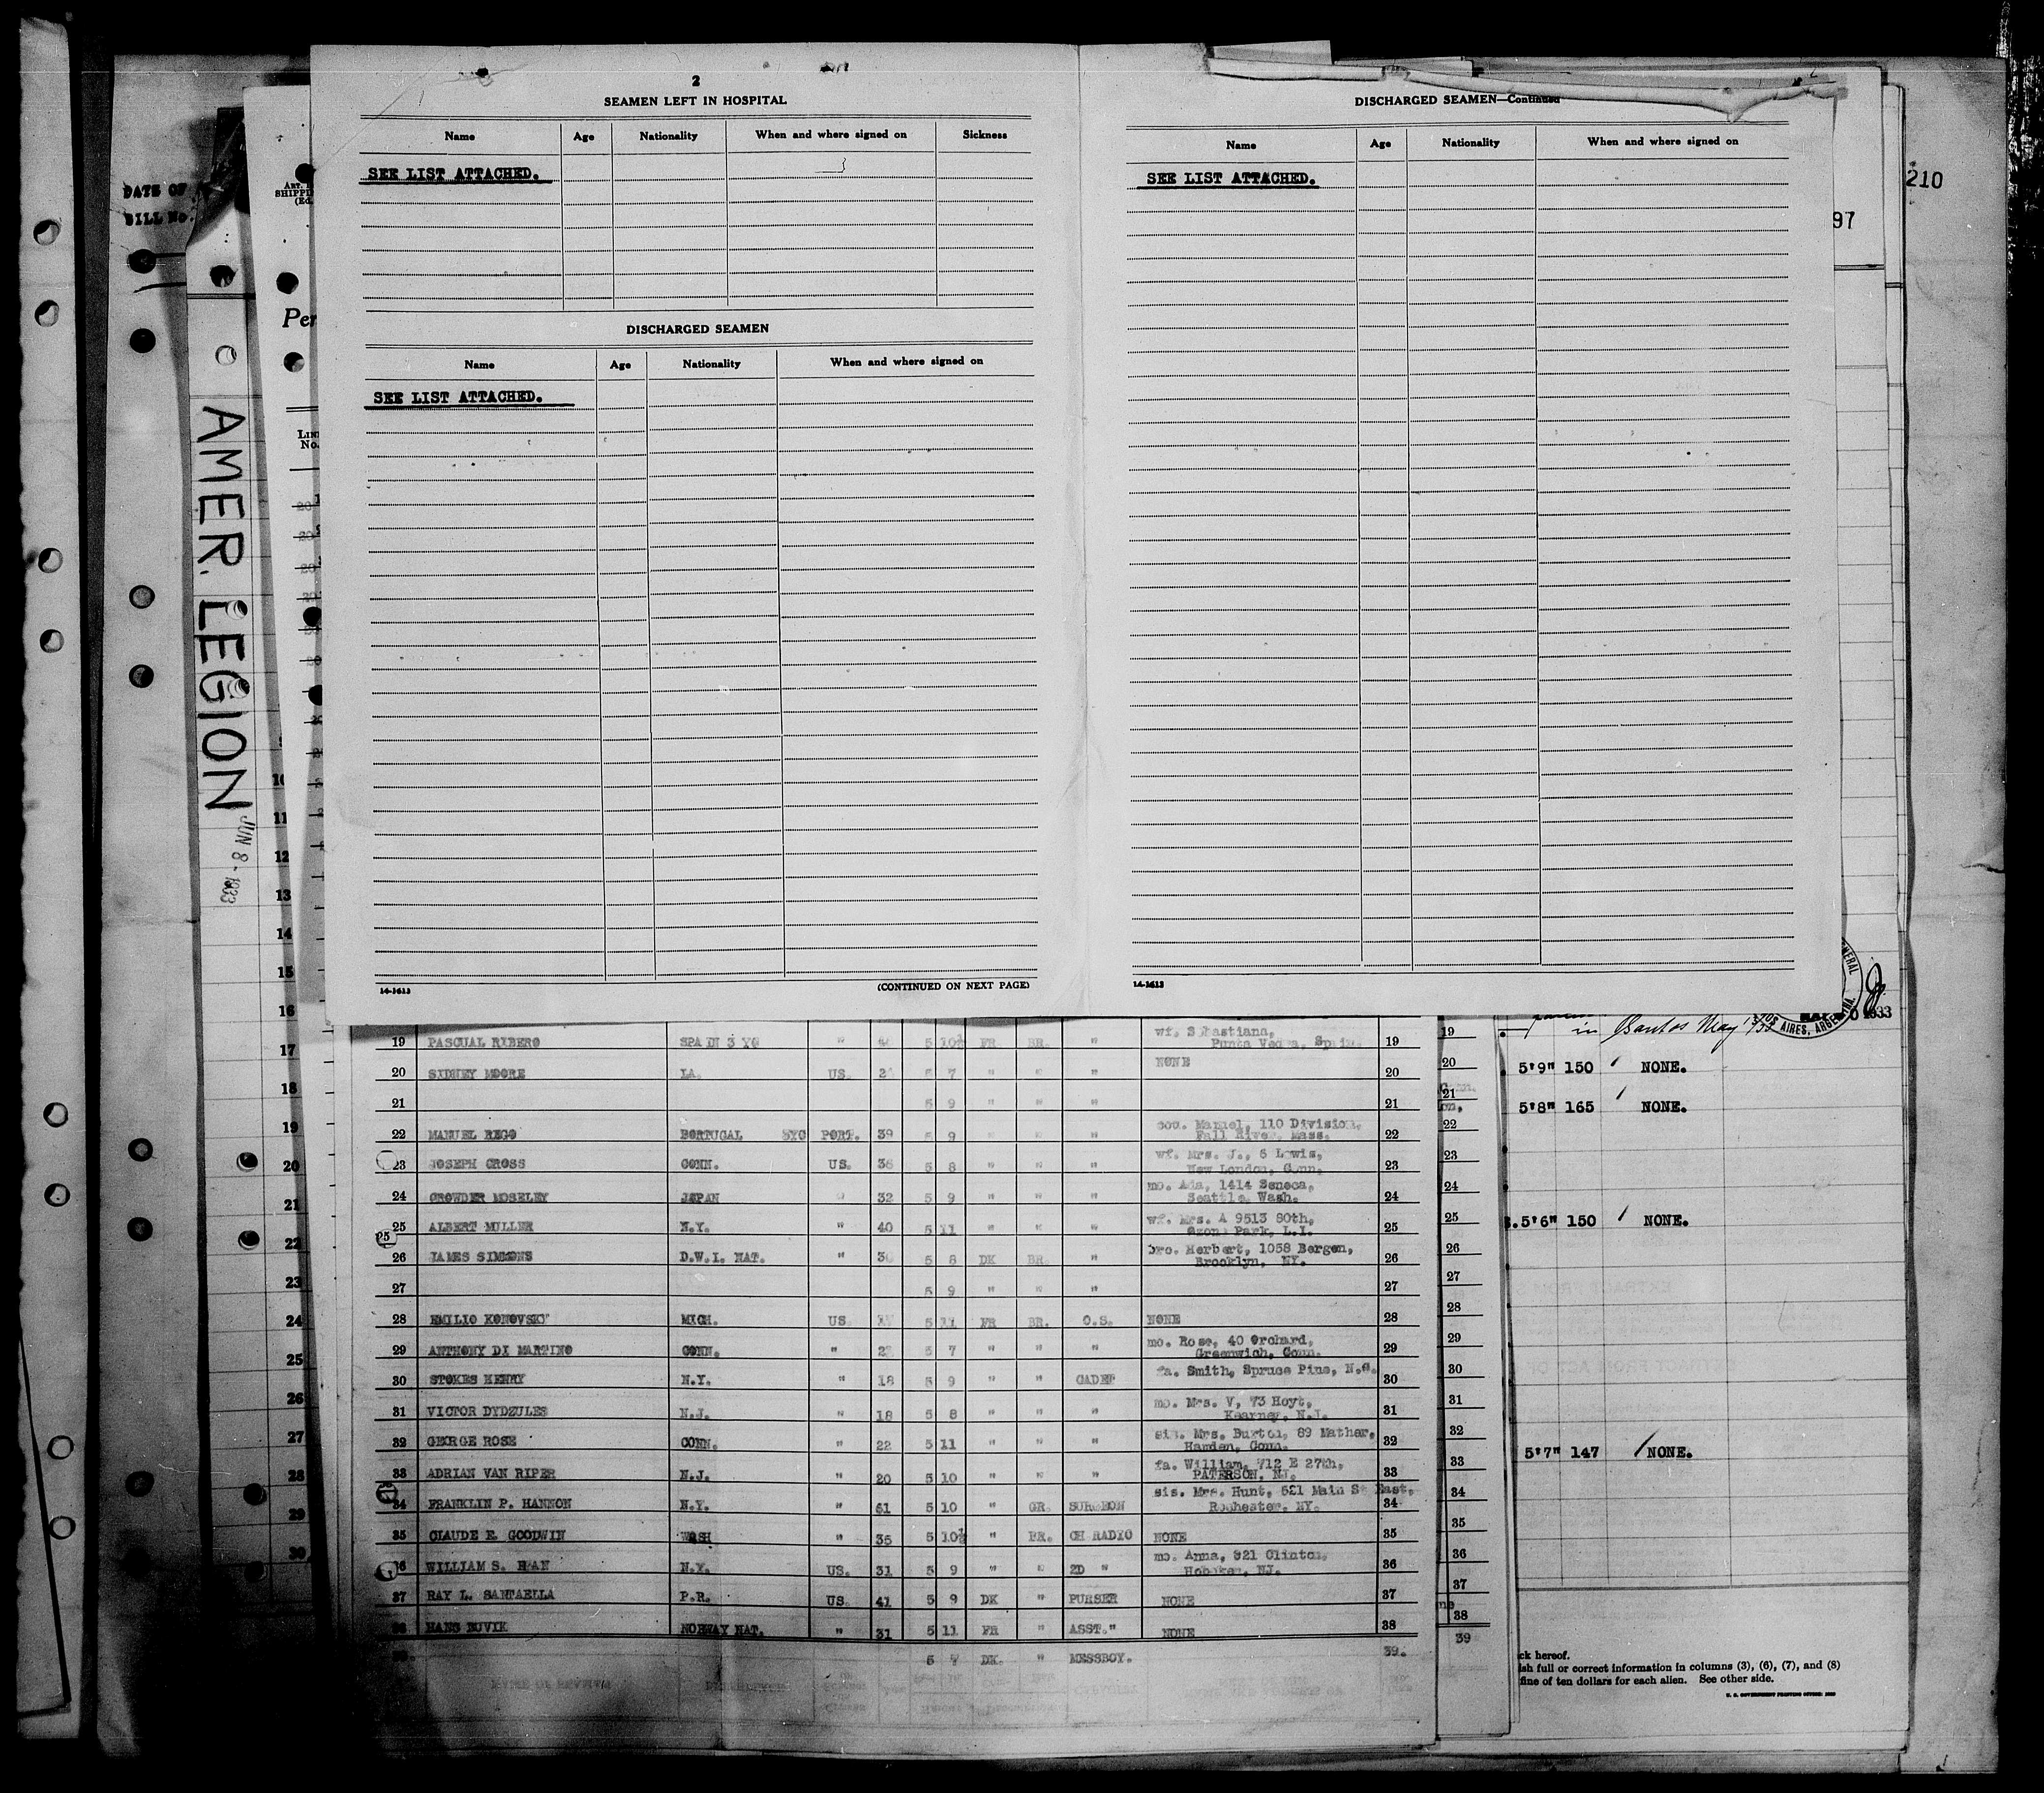 DATE OF
BILL No.
AMER. LEGION
JUN 8 - 1933
SHIPPI
(Ed.
Per
LINE
No.
2
SEAMEN LEFT IN HOSPITAL
Name Age Nationality When and where signed on Sickness
SEE LIST ATTACHED.
DISCHARGED SEAMEN
Name Age Nationality When and where signed on
SEE LIST ATTACHED.
14-1613 (CONTINUED ON NEXT PAGE)
DISCHARGED SEAMEN—Continued
Name Age Nationality When and where signed on
SEE LIST ATTACHED.
14-1613
210
97
10
11
12
13
14
15
16
17
18
19
20
21
22
23
24
25
26
27
28
29
30
wf. S bastiana,
19 PASCUAL RIBERO SPAIN 3 YG " 5 10½ FR BR. " Punta Vedra, Spain. 19
20 SIDNEY MOORE LA. US. 5 7 " " " NONE 20
21 5 9 " " " 21
cou. Manuel, 110 Division,
22 MANUEL REGO PORTUGAL 3YG PORT. 39 5 9 " " " Fall River, Mass. 22
wf. Mrs. J., 6 Lewis,
23 JOSEPH CROSS CONN. US. 36 5 8 " " " New London, Conn. 23
mo. Ada, 1414 Seneca,
24 CROWDER MOSELEY JAPAN " 32 5 9 " " " Seattle, Wash. 24
wf. Mrs. A 9513 80th,
25 ALBERT MULLER N.Y. " 40 5 11 " " " Ozone Park, L.I. 25
bro. Herbert, 1058 Bergen,
26 JAMES SIMMONS D.W.I. NAT. " 30 5 8 DK BR. " Brooklyn, NY. 26
27 5 9 " " 27
28 EMILIO KONOVSKI MICH. US 5 11 FR BR. O.S. NONE 28
mo. Rose, 40 Orchard,
29 ANTHONY DI MARTINO CONN. " 5 7 " " " Greenwich, Conn. 29
30 STOKES HENRY N.Y. " 18 5 9 " " CADET fa. Smith, Spruce Pine, N.C. 30
mo. Mrs. V, 73 Hoyt,
31 VICTOR DYDZULES N.J. " 18 5 8 " " " Kearney, N.J. 31
sis. Mrs. Burton, 89 Mather,
32 GEORGE ROSE CONN. " 22 5 11 " " " Hamden, Conn. 32
fa. William, 712 E 27th,
33 ADRIAN VAN RIPER N.J. " 20 5 10 " " " PATERSON, NJ. 33
sis. Mrs. Hunt, 521 Main St East,
34 FRANKLIN P. HANNON N.Y. " 61 5 10 " GR. SURGEON Rochester, NY. 34
35 CLAUDE E. GOODWIN WASH " 35 5 10½ " BR. CH RADIO NONE 35
mo. Anna, 921 Clinton,
36 WILLIAM S. N.Y. US. 31 5 9 " " 2D " Hoboken, NJ. 36
37 RAY L. SANTAELLA P.R. US 41 5 9 DK " PURSER NONE 37
38 HANS NORWAY NAT. " 31 5 11 FR " ASST." NONE 38
39. 5 7 DK. " MESSBOY. 39.
19
20
21
22
23
24
25
26
27
28
29
30
31
32
33
34
35
36
37
38
39
in Santos May
AIRES, ARGENTINA.
1933
5'9" 150 NONE.
5'8" 165 NONE.
5'6" 150 NONE.
5'7" 147 NONE.
ck hereof.
ish full or correct information in columns (3), (6), (7), and (8)
fine of ten dollars for each alien. See other side.